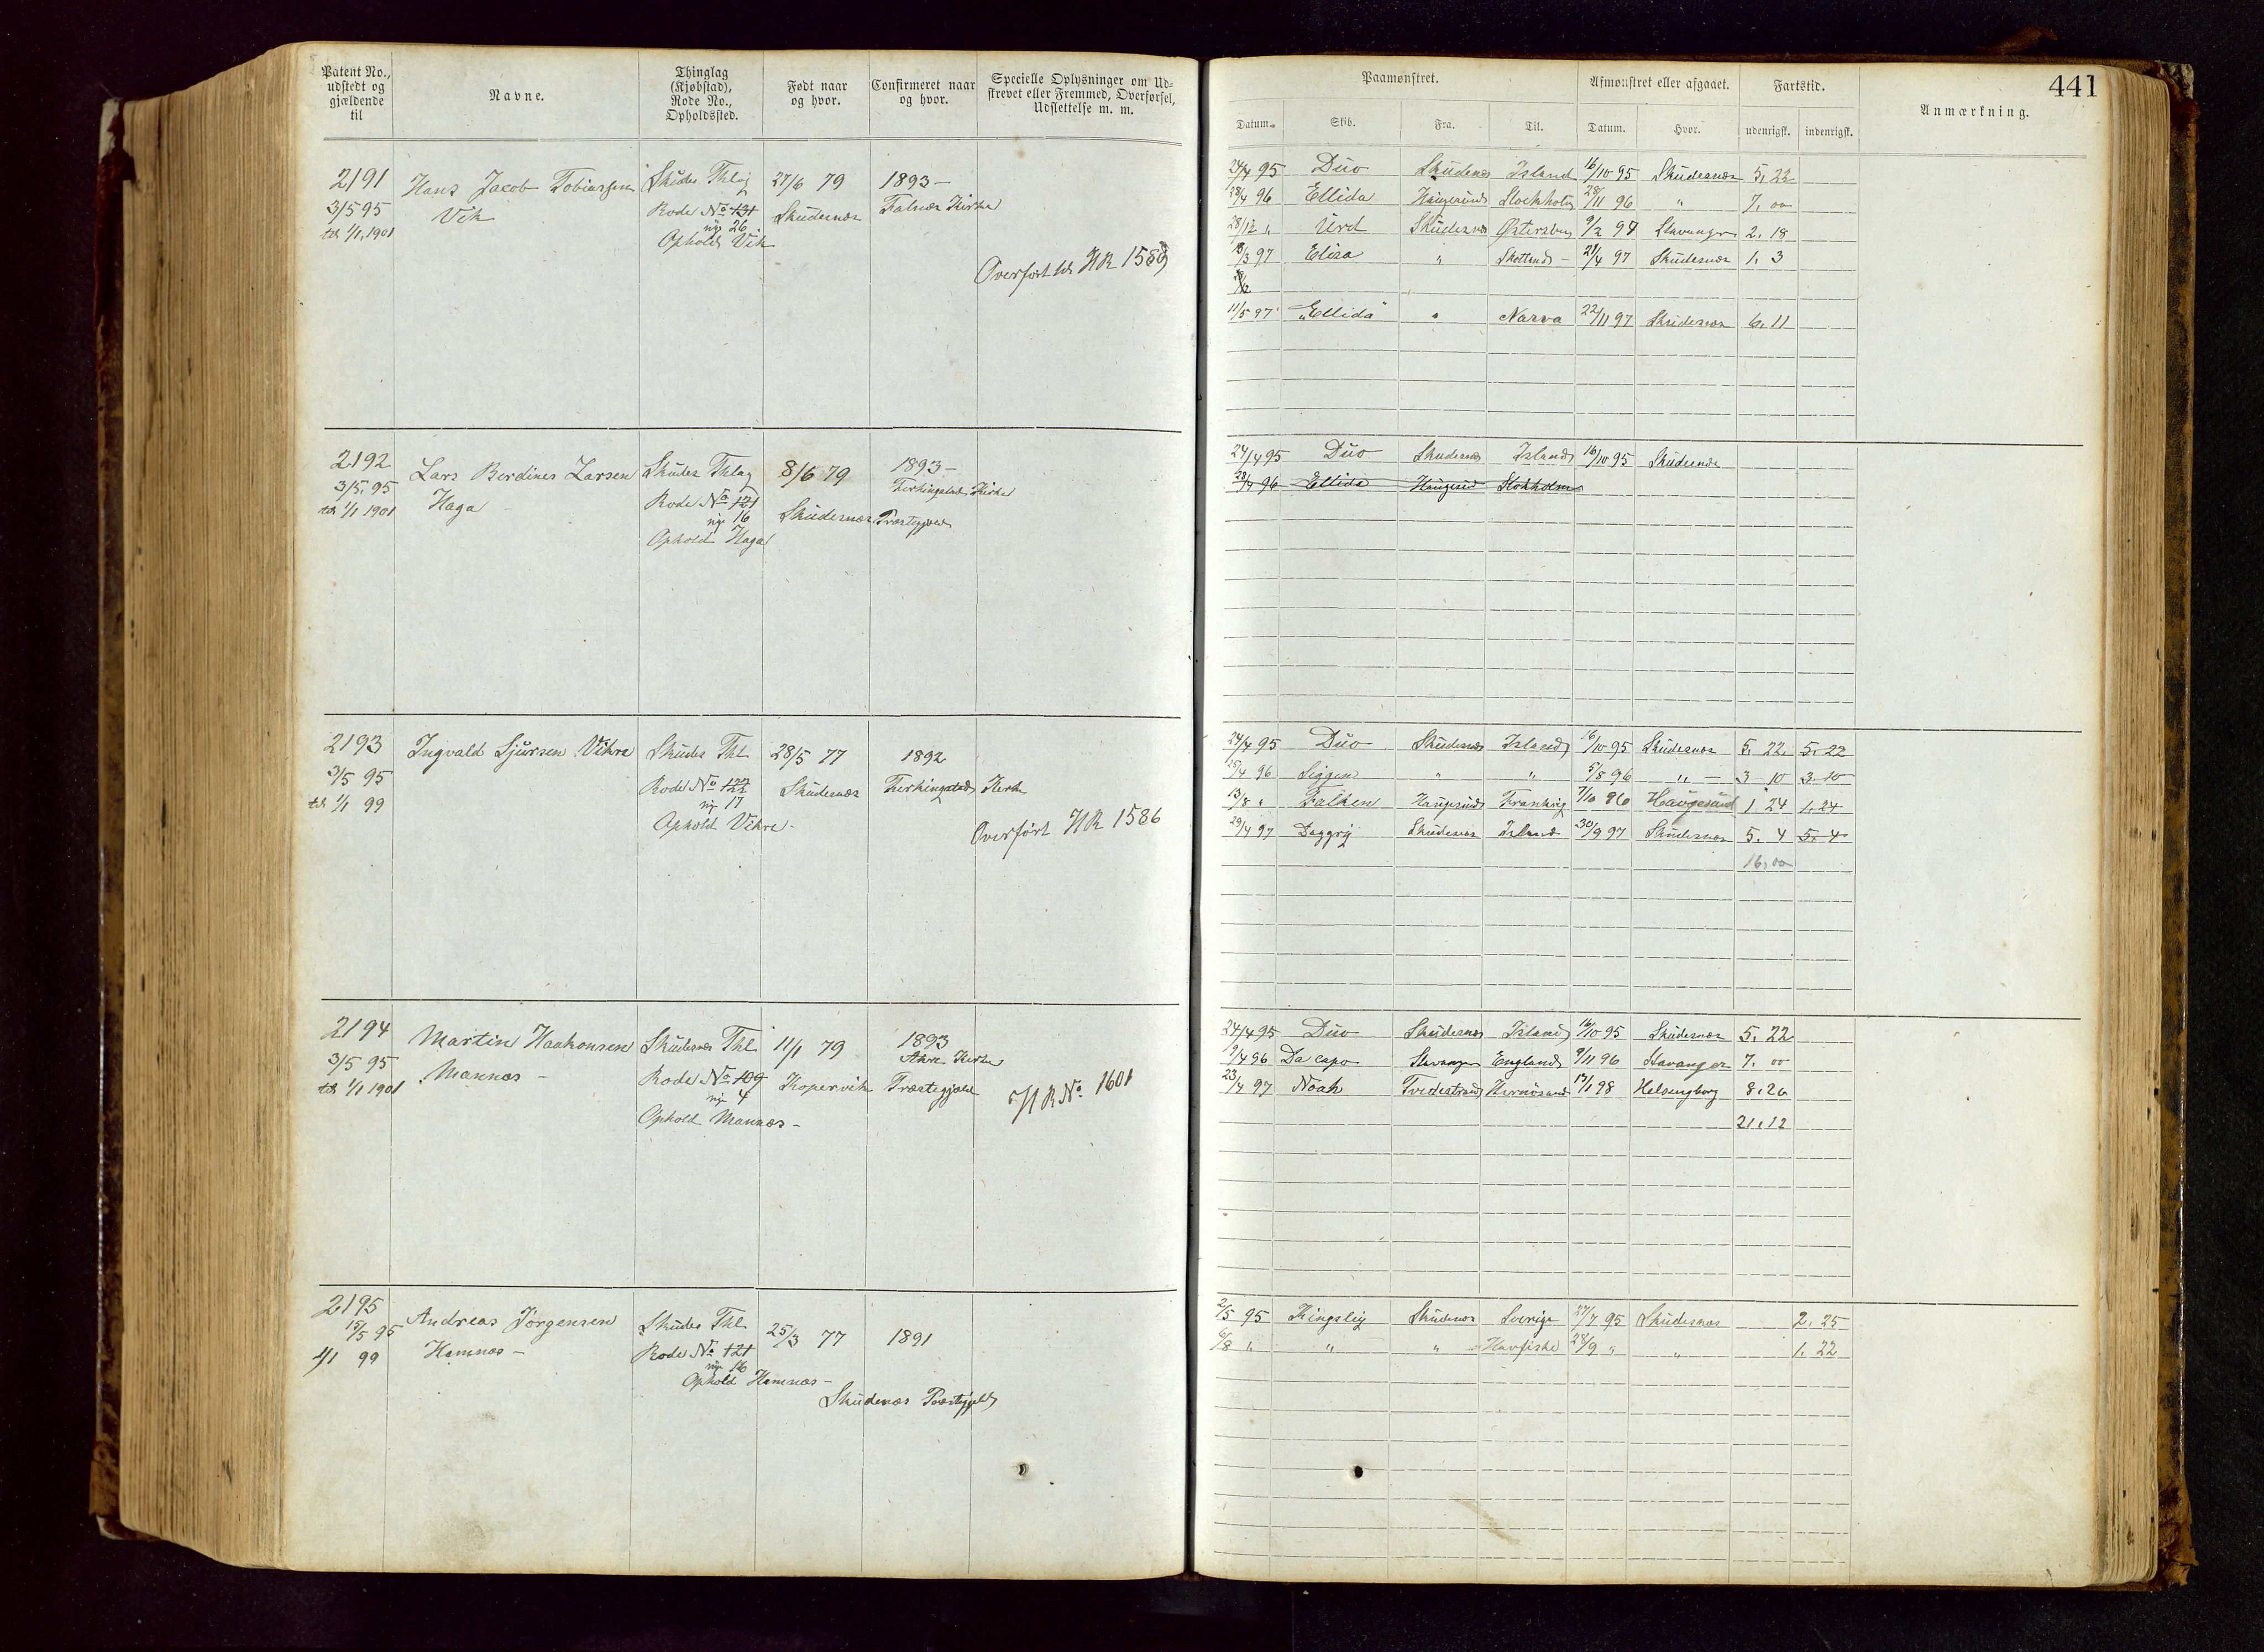 Patent No., udstedt og gjældende til
Navne.
Thinglag (Kjøbstad), Rode No., Opholdssted.
Født naar og hvor.
Confirmeret naar og hvor.
Specielle Oplysninger om Udskrevet eller Fremmed, Overførsel, Udslettelse m. m.
2191 Hans Jacob Tobiassen Skudes Thlag 27/6 79 1893 –
3/5 95 Vik Rode No 131 Skudesnæs Falnæs Kirke
til 1/1, 1901 ny 26
Ophold Vik
Overført til HR 1589
2192 Lars Berdines Larsen Skudes Thlag 8/6 79 1893 –
3/5. 95 Haga Rode No 121 Skudesnæs Ferkingstad Kirke
til 1/1 1901 ny 16 Præstegjeld
Ophold Haga
2193 Ingvald Sjursen Vikre Skudes Thl 28/5 77 1892
3/5 95 Rode No 122 Skudesnæs Ferkingstad Kirke
til 1/1 99 ny 17
Ophold Vikre –
Overført HR 1586
2194 Martin Haakonsen Skudesnæs Thl 11/1 79 1893
3/5 95 Mannes – Rode No 109 Kopervik Åkre Kirke
til 1/1 1901 ny 4 Præstegjeld
Ophold Mannes –
HR No. 1601
2195 Andreas Jørgensen Skudes Thl 25/3 77 1891
15/5 95 Hemnes – Rode No 121
1/1 99 ny 16
Ophold Hemnes –
Skudenæs Præstegjeld
441
Paamønstret. Afmønstret eller afgaaet. Fartstid. Anmærkning.
Datum. Skib. Fra. Til. Datum. Hvor. udenrigsk. indenrigsk.
24/4 95 Duo Skudenes Island 16/10 95 Skudesnæs 5. 22
28/4 96 Ellida Haugesund Stockholm 28/11 96 " 7. 00
28/12 " Urd Skudesnes 9/2 97 Stavanger 2. 18
18/3 97 Elisa " Skotland – 21/4 97 Skudesnæs 1. 3
11/5 97 "Ellida" " Narva 22/11 97 Skudesnæs 6. 11
24/4 95 Duo Skudesnæs Island 16/10 95 Skudesnæs
28/4 96 Ellida Haugesund Stokholm
24/4 95 Duo Skudesnæs Island 16/10 95 Skudesnæs 5. 22. 5. 22
25/4 96 Siggen " " 5/8 96 " – 3 10 3. 10
13/8 " Falken Haugesund Frankrig 7/10 96 Haugesund 1. 24 1. 24
29/4 97 Daggry Skudesnæs Island 30/9 97 Skudesnæs 5. 4 5. 4
16. 00
24/4 95 Duo Skudesnes Island 16/10 95 Skudesnæs 5. 22
9/4 96 Da capo Stavanger England 9/11 96 Stavanger 7. 00
23/4 97 Noah Tvedestrand Hernøsand 13/1 98 Helsingborg 8. 20
21. 12
2/5 95 Kingsley Skudenæs Sverige 27/7 95 Skudesnæs 2. 25
6/8 " " " Havfiske 28/9 " " 1. 22